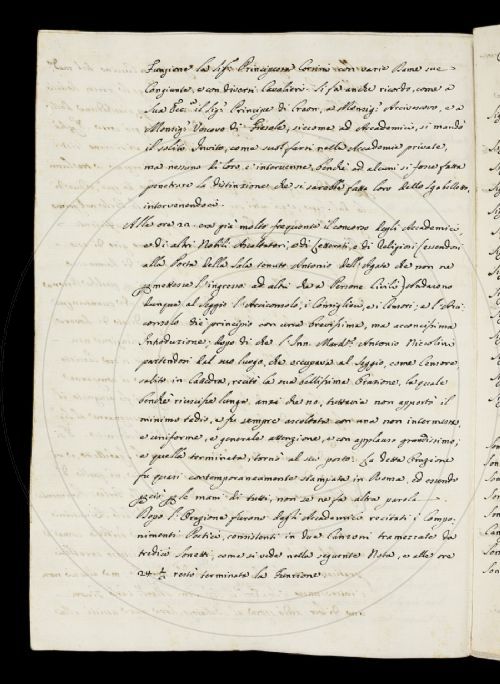 Funzione la Sig.ra Principessa Corsini con varie Dame sue
Congiunte, e con diversi Cavalieri. Si fa anche ricordo, come a
Sua Ecc.za il Sig.r Principe di Craon, a Monsig.r Arcivescovo, e a
Monsig.r Vescovo di Fiesole, siccome ad Accademici, si mandò
il solito Invito, come suol farsi nelle Accademie private,
ma nessuno di loro v'intervenne, benchè ad alcuni si fosse fatta
penetrare la distinzione, che si sarebbe fatta loro dello Sgabelletto,
intervenendovi.
Alle ore 22. era già molto frequente il concorso degli Accademici,
e di altri Nobili Ascoltatori, e di Letterati, e di Religiosi (essendosi
alla Porta della Sala tenuto Antonio dell'Agata che non ne
permettesse l'ingresso ad altri che a Persone Civili) Andarono
dunque al Seggio l'Arciconsolo, i Consiglieri, e i Censori; e l'Arci-
consolo diè principio con una brevissima, ma aconcissima
Introduzione; dopo di che l'Inn. March.e Antonio Niccolini
partendosi dal suo luogo, che occupava al Seggio, come Censore,
salito in Catedra, recitò la sua bellissima Orazione, la quale
benchè riuscisse lunga anzi che no, tuttavia non apportò il
minimo tedio, e fu sempre ascoltata con una non interrotta,
e uniforme, e generale attenzione, e con applauso grandissimo;
e quella terminata, tornò al suo posto. La detta Orazione
fu quasi contemporaneamente stampata in Roma, ed essendo
perciò per le mani di tutti, non se ne fa altra parola.
Dopo l'Orazione furono dagli Accademici recitati i Compo-
nimenti Poetici, consistenti in due Canzoni tramezzate da
tredici Sonetti, come si vede nella seguente Nota, e alle ore
24 1/2 restò terminata la Funzione